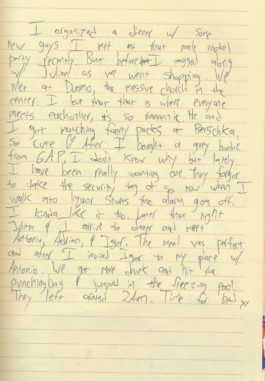 I organized a dinner w/ some
new guys I met at that male model
party recently. But before I tagged along
w/ Julian as we went shopping. We
met at Duomo, the massive church in the
center. I love that that is where everyone
meets eachother, it's so romantic. He and
I got matching fanny packs at Berschka,
so cute! After I bought a grey hoodie
from G.A.P, I don't know why but lately
I have been really wanting one. They forgot
to take the security tag off so now when I
walk into liquor stores the alarm goes off.
I kinda like it tho. Later that night
Julian & I arrive to dinner and meet
Antonio, Adrian, & Igor. The meal was perfect
and after I invited Igor to my place w/
Antonio. We got more drunk and hit the
punching bag & jumped in the freezing pool.
They left around 2am. Time for bed xx